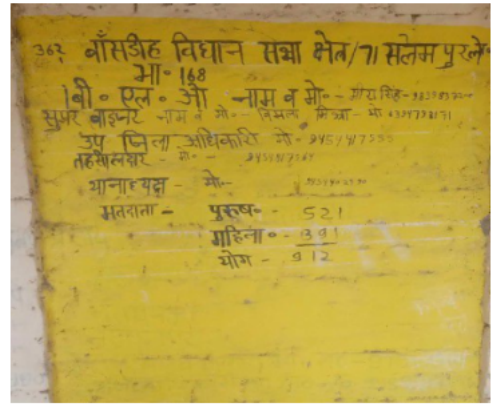 362 बाँसडीह विधान सभा क्षेत्र/71 सलेमपुर लो०
भा० 168
बी० एल० ओ नाम व मो०-
सुपर वाइजर नाम व मो०-- विमल मिश्रा - मो
उप जिला अधिकारी मो० - 9454417555
तहसीलदार - मो० --
थानाध्यक्ष - मो०-
मतदाता - पुरूष०- 521
महिला० - 391
योग - 912